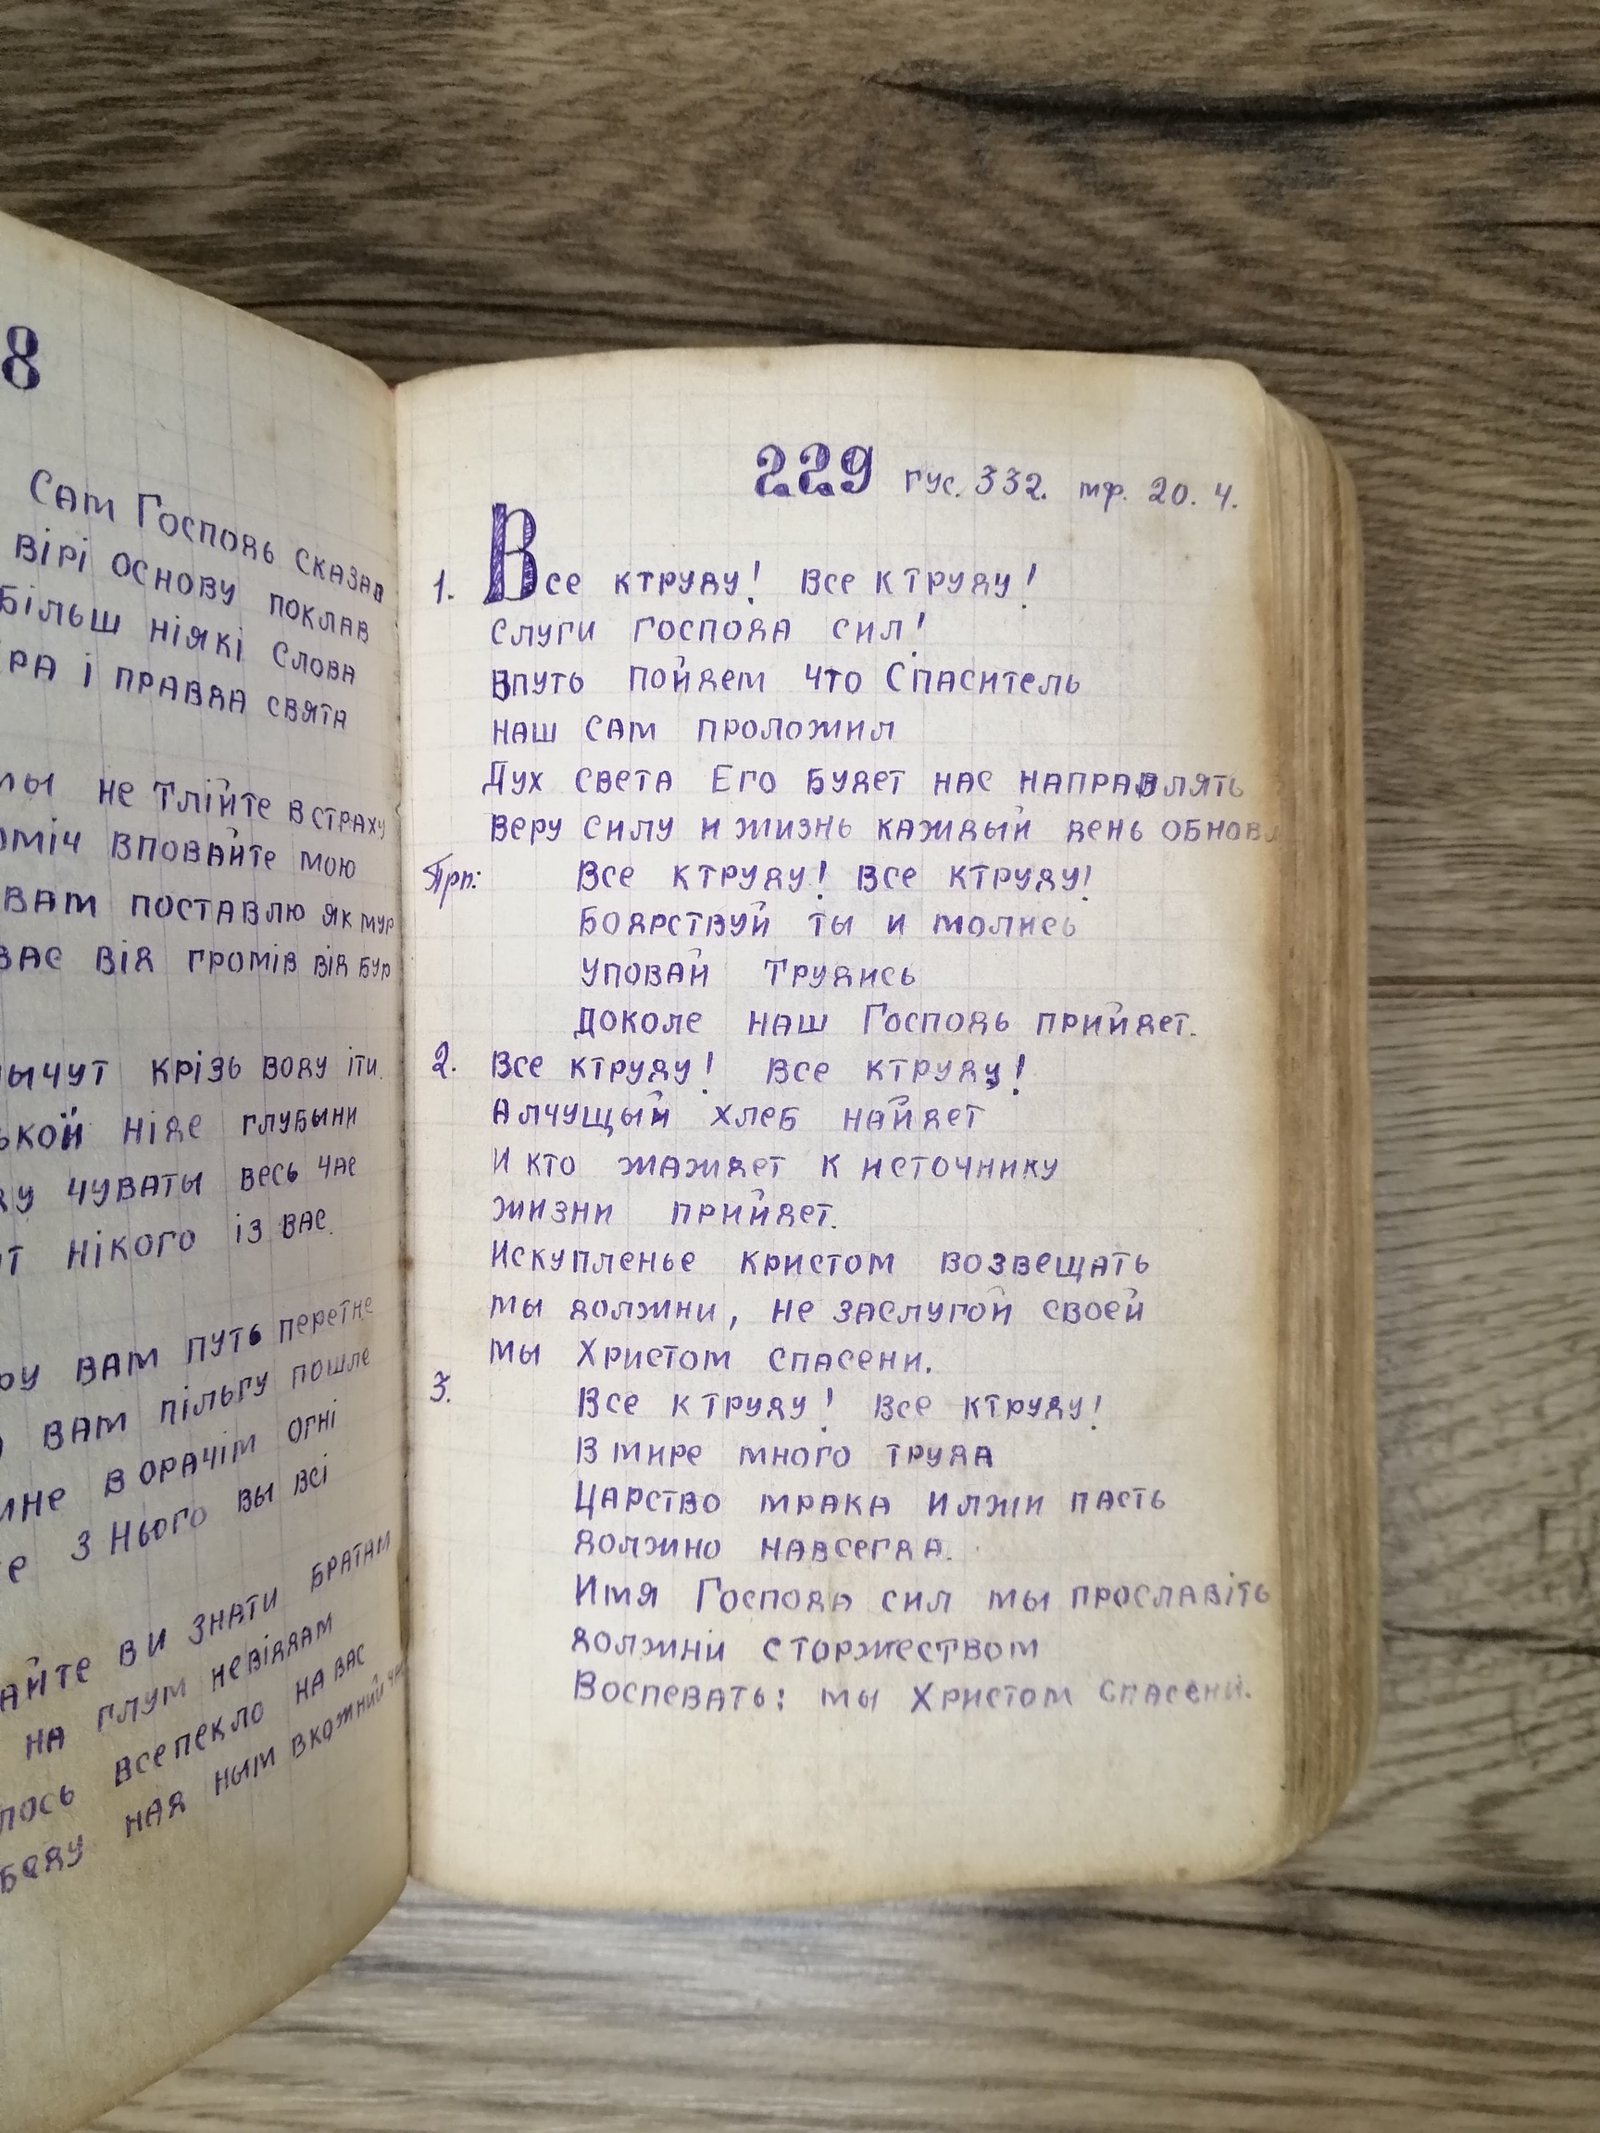 8
Сам Господь сказав
вірі основу поклав
Більш ніякі Слова
і правда свята
не тлійте в страху
вповайте мою
вам поставлю як мур
вас від громів від бур
крізь воду іти
ніде глубыни
чуваты весь час
нікого із вас.
вам путь перетне
вам пільгу пошле
ворачім огні
з нього вы всі
ви знати братам
на глум невіддам
все пекло на вас
над ным вкожний
229 гус. 332. мф. 20. 4.
1. Все ктруду! Все ктруду!
Слуги господа сил!
Впуть пойдем что Спаситель
наш сам проложил
Дух света Его будет нас направлять
веру силу и жизнь каждый день обновл
Прп: Все ктруду! Все ктруду!
Бодрствуй ты и молись
уповай трудись
Доколе наш Господь прийдет.
2. Все ктруду! Все ктруду!
Алчущый хлеб найдет
И кто жаждет к источнику
жизни прийдет.
Искупленье кристом возвещать
мы должни, не заслугой своей
мы Христом спасени.
3. Все ктруду! Все ктруду!
В мире много труда
Царство мрака илжи пасть
должно навсегда.
Имя Господа сил мы прославіть
должни сторжеством
Воспевать: мы Христом спасени.